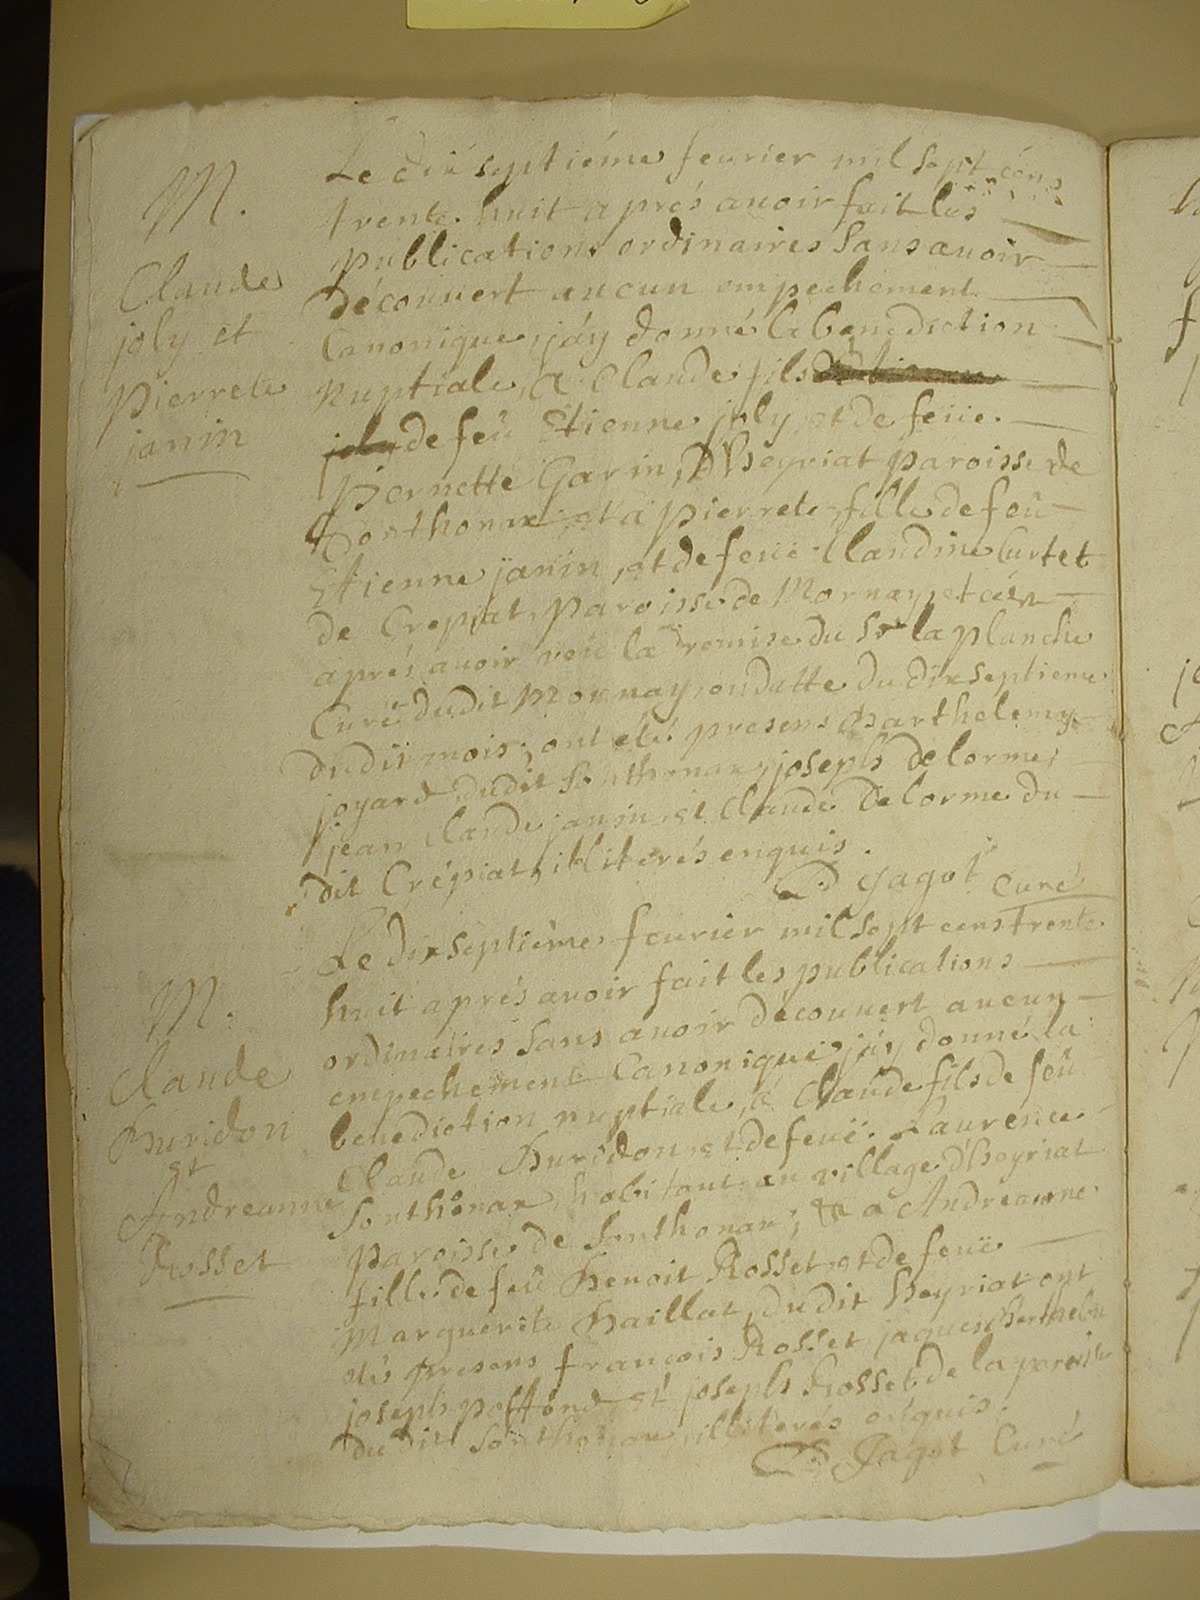 M.
Claude
joly et
Pierrete
janin
Le dix septiéme feurier mil sept cens
trente huit aprés auoir fait les
publications ordinaires sans auoir
découuert aucun empechement
Canonique, jáy donné la benediction
nuptiale, a Claude fils
joly de feû Etienne joly, et de feüe
Pernette Garin, D'heyriat paroisse de
Sonthonax, et a pierrete, fille de feû
Etienne janin, et de feüe Claudine Curtet
de Crepiat, paroisse de Mornay, et cé
aprés auoir veü la remise du Sr la planche
Curé dudit Mornay, en datte du dix septieme
dudit mois, ont eté presens Barthelemy
joyard dudit Sonthonax, joseph Delorme,
jean Claude janin et Claude Delorme du
dit Crépiat, illiterés enquis.
Jagot Curé
M.
Claude
Buridon
et
Andreanne
Rosset
Le dix septiéme feurier mil sept cens trente
huit aprés auoir fait les publications
ordinaires sans auoir découuert aucun
empechement Canonique, jáy donné la
benediction nuptiale, á Claude fils de feû
Claude Buridon, et de feüe Laurence
Sonthonax, habitant au village d'heyriat
paroisse de Sonthonax, & a Andreanne
fille de feû Benoit Rosset, et de feüe
Marguerite Baillat, dudit heyriat ont
eté presens françois Rosset, jaques Berthelon
joseph poffond et joseph Rosset de la paroisse
du dit Sonthonax, illiterés enquis.
Jagot Curé